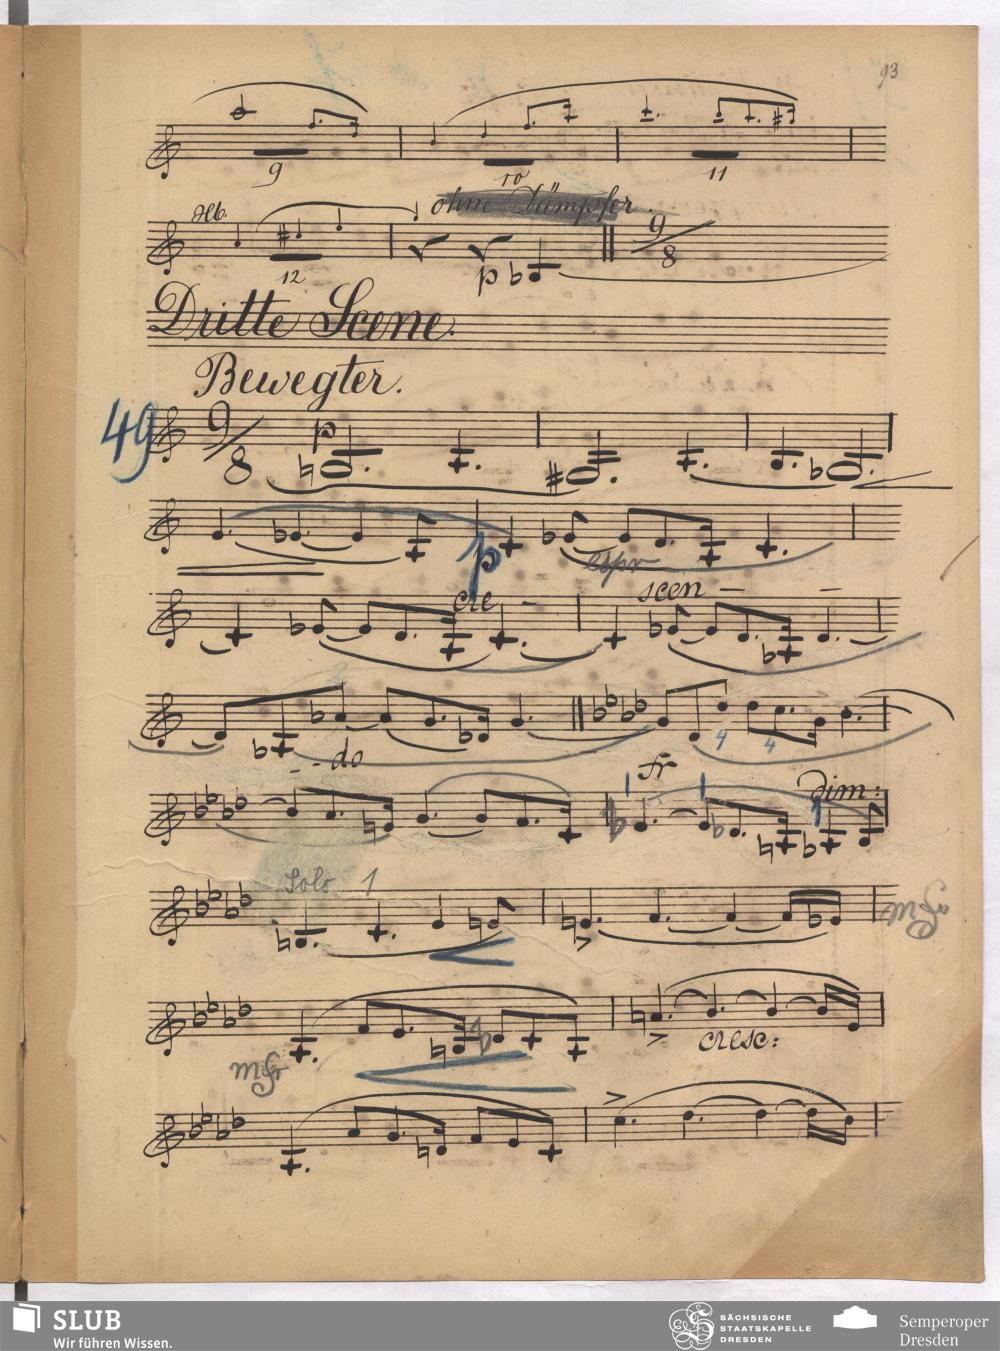 93
9
10
11
Hlb.
ohne Dämpfer.
12
p
9/8
Dritte Scene.
Bewegter.
49
9/8
p
p
espr
cre - scen - -
- - do
4 4
fr
dim:
Solo 1
cresc:
SLUB
Wir führen Wissen.
SÄCHSISCHE
STAATSKAPELLE
DRESDEN
Semperoper
Dresden